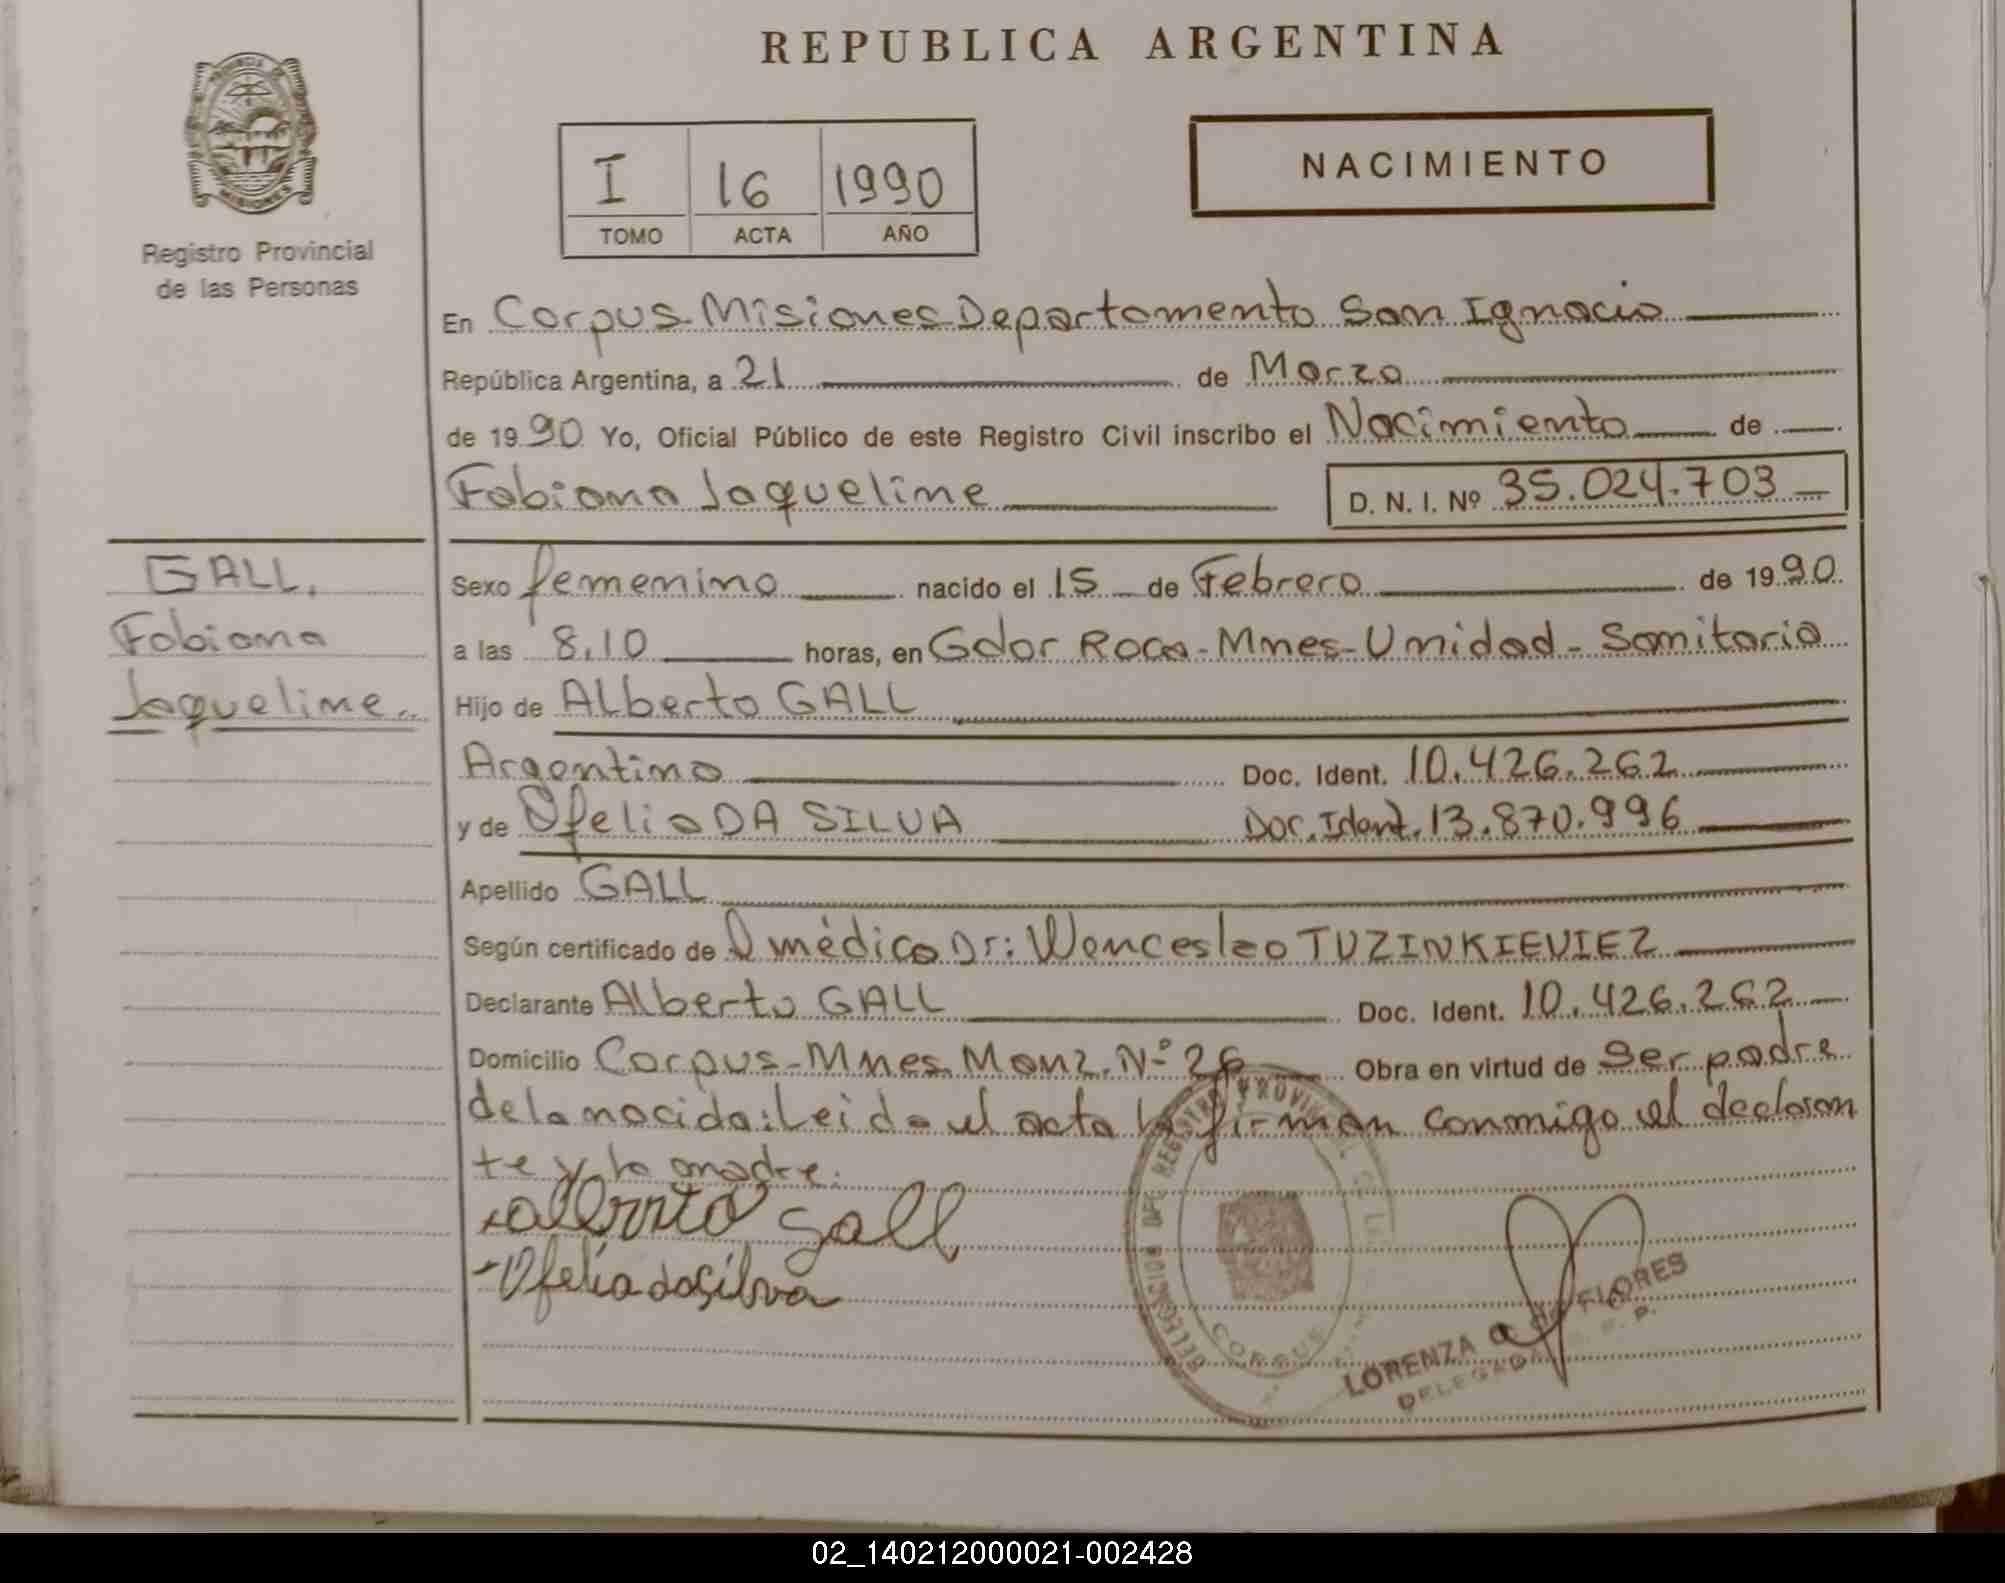 REPUBLICA ARGENTINA
PROVINCIA DE
MISIONES
Registro Provincial
de las Personas
I 16 1990
TOMO ACTA AÑO
NACIMIENTO
En Corpus-Misiones Departamento San Ignacio
República Argentina, a 21 de Marzo
de 1990 Yo, Oficial Público de este Registro Civil inscribo el Nacimiento de
Fabiana Jaqueline D. N. I. Nº 35.024.703
GALL,
Fabiana
Jaqueline
Sexo femenino nacido el 15 de Febrero de 1990
a las 8,10 horas, en Gdor Roca-Mnes-Unidad-Sanitaria
Hijo de Alberto GALL
Argentino Doc. Ident. 10.426.262
y de Ofelia DA SILVA Doc. Ident. 13.870.996
Apellido GALL
Según certificado de médico Dr: Wencesleo TUZINKIEVIEZ
Declarante Alberto GALL Doc. Ident. 10.426.262
Domicilio Corpus-Mnes Manz. Nº 26 Obra en virtud de Ser padre
de la nacida: Leida el acta la firman conmigo el declaran
te y la madre.
Alberto Gall
-Ofelia da Silva
DELEGACION DEL REGISTRO PROVINCIAL
CORPUS
LORENZA de FLORES
DELEGADA R. P.
02_140212000021-002428